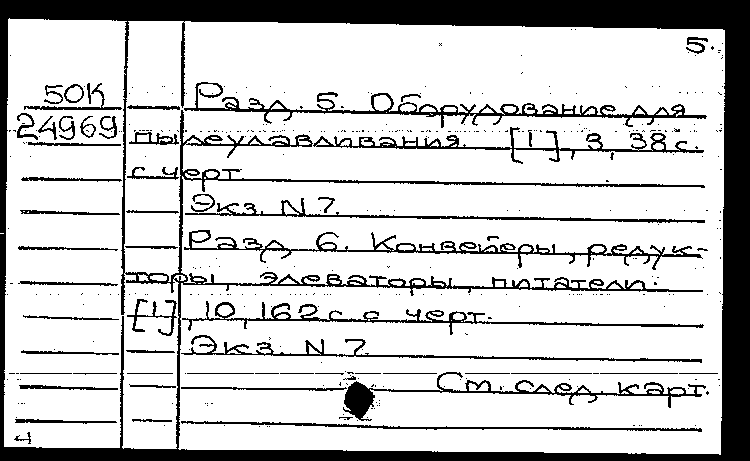 5.
50К
24969
Разд. 5. Оборудование для
пылеулавливания. [1], 3, 38 с.
с черт.
Экз. N 7.
Разд. 6. Конвейеры, редук-
торы, элеваторы, питатели.
[1], 10, 162 с. с черт.
Экз. N 7.
См. след. карт.
ч